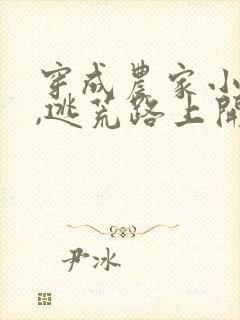 穿成農家小
,逃荒路上開
尹冰